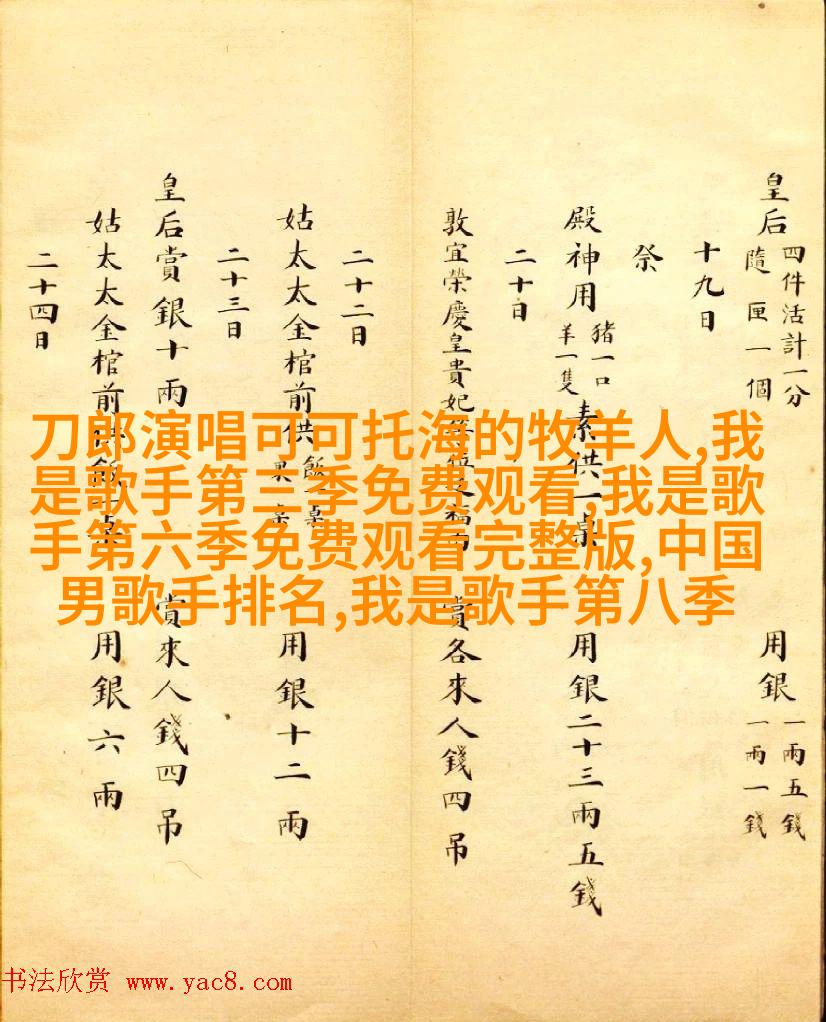 皇后 四件活計一分 隨匣一個 用銀 一兩五錢 一兩一錢
十九日
祭
殿神用 猪一口 羊一隻 素供一桌 用銀二十三兩五錢
二十日
敦宜榮慶皇貴妃 賞各來人錢四吊
二十二日
姑太太金棺前供飯一桌 用銀十二兩
二十三日
皇后賞銀十兩 賞來人錢四吊
姑太太金棺前供飯一桌 用銀六兩
二十四日
刀郎演唱可可托海的牧羊人,我
是歌手第三季免费观看,我是歌
手第六季免费观看完整版,中国
男歌手排名,我是歌手第八季
书法欣赏 www.yac8.com